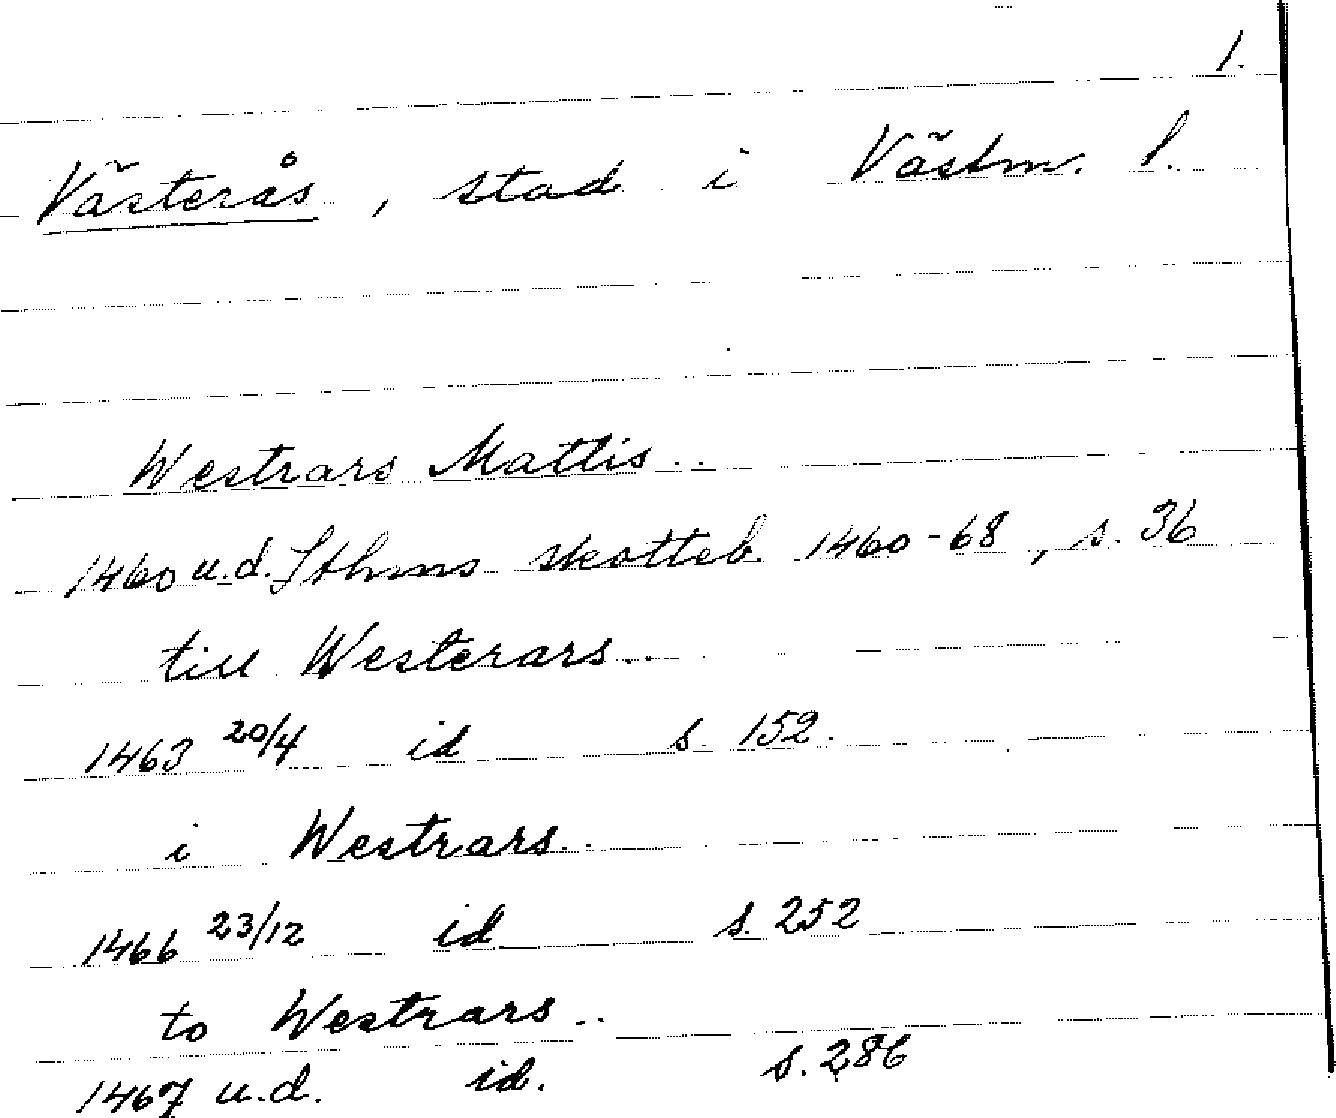 1.
Västerås, stad i Västm. l.
Westrars Mattis..
1460 u.d. Sthms skotteb. 1460-68, s. 36
till Westerars..
1463 20/4 id s. 152.
i Westrars..
1466 23/12 id s. 252
to Westrars..
1467 u.d. id. s. 286